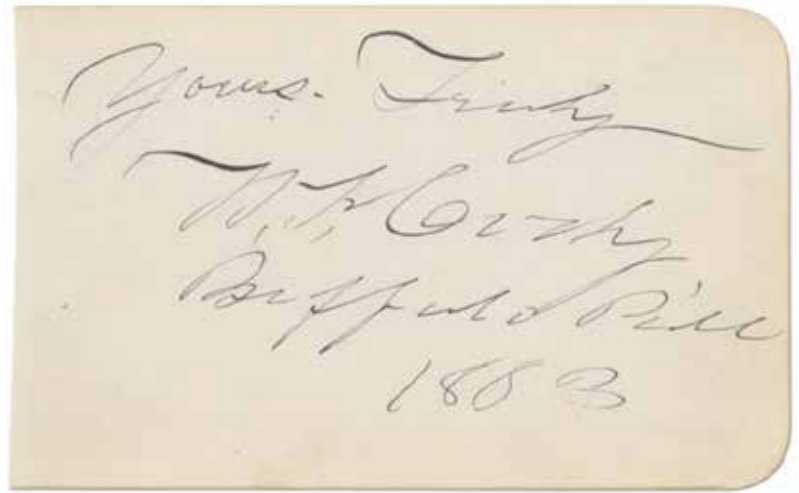 Yours. Truly
W. F. Cody
Buffalo Bill
1883